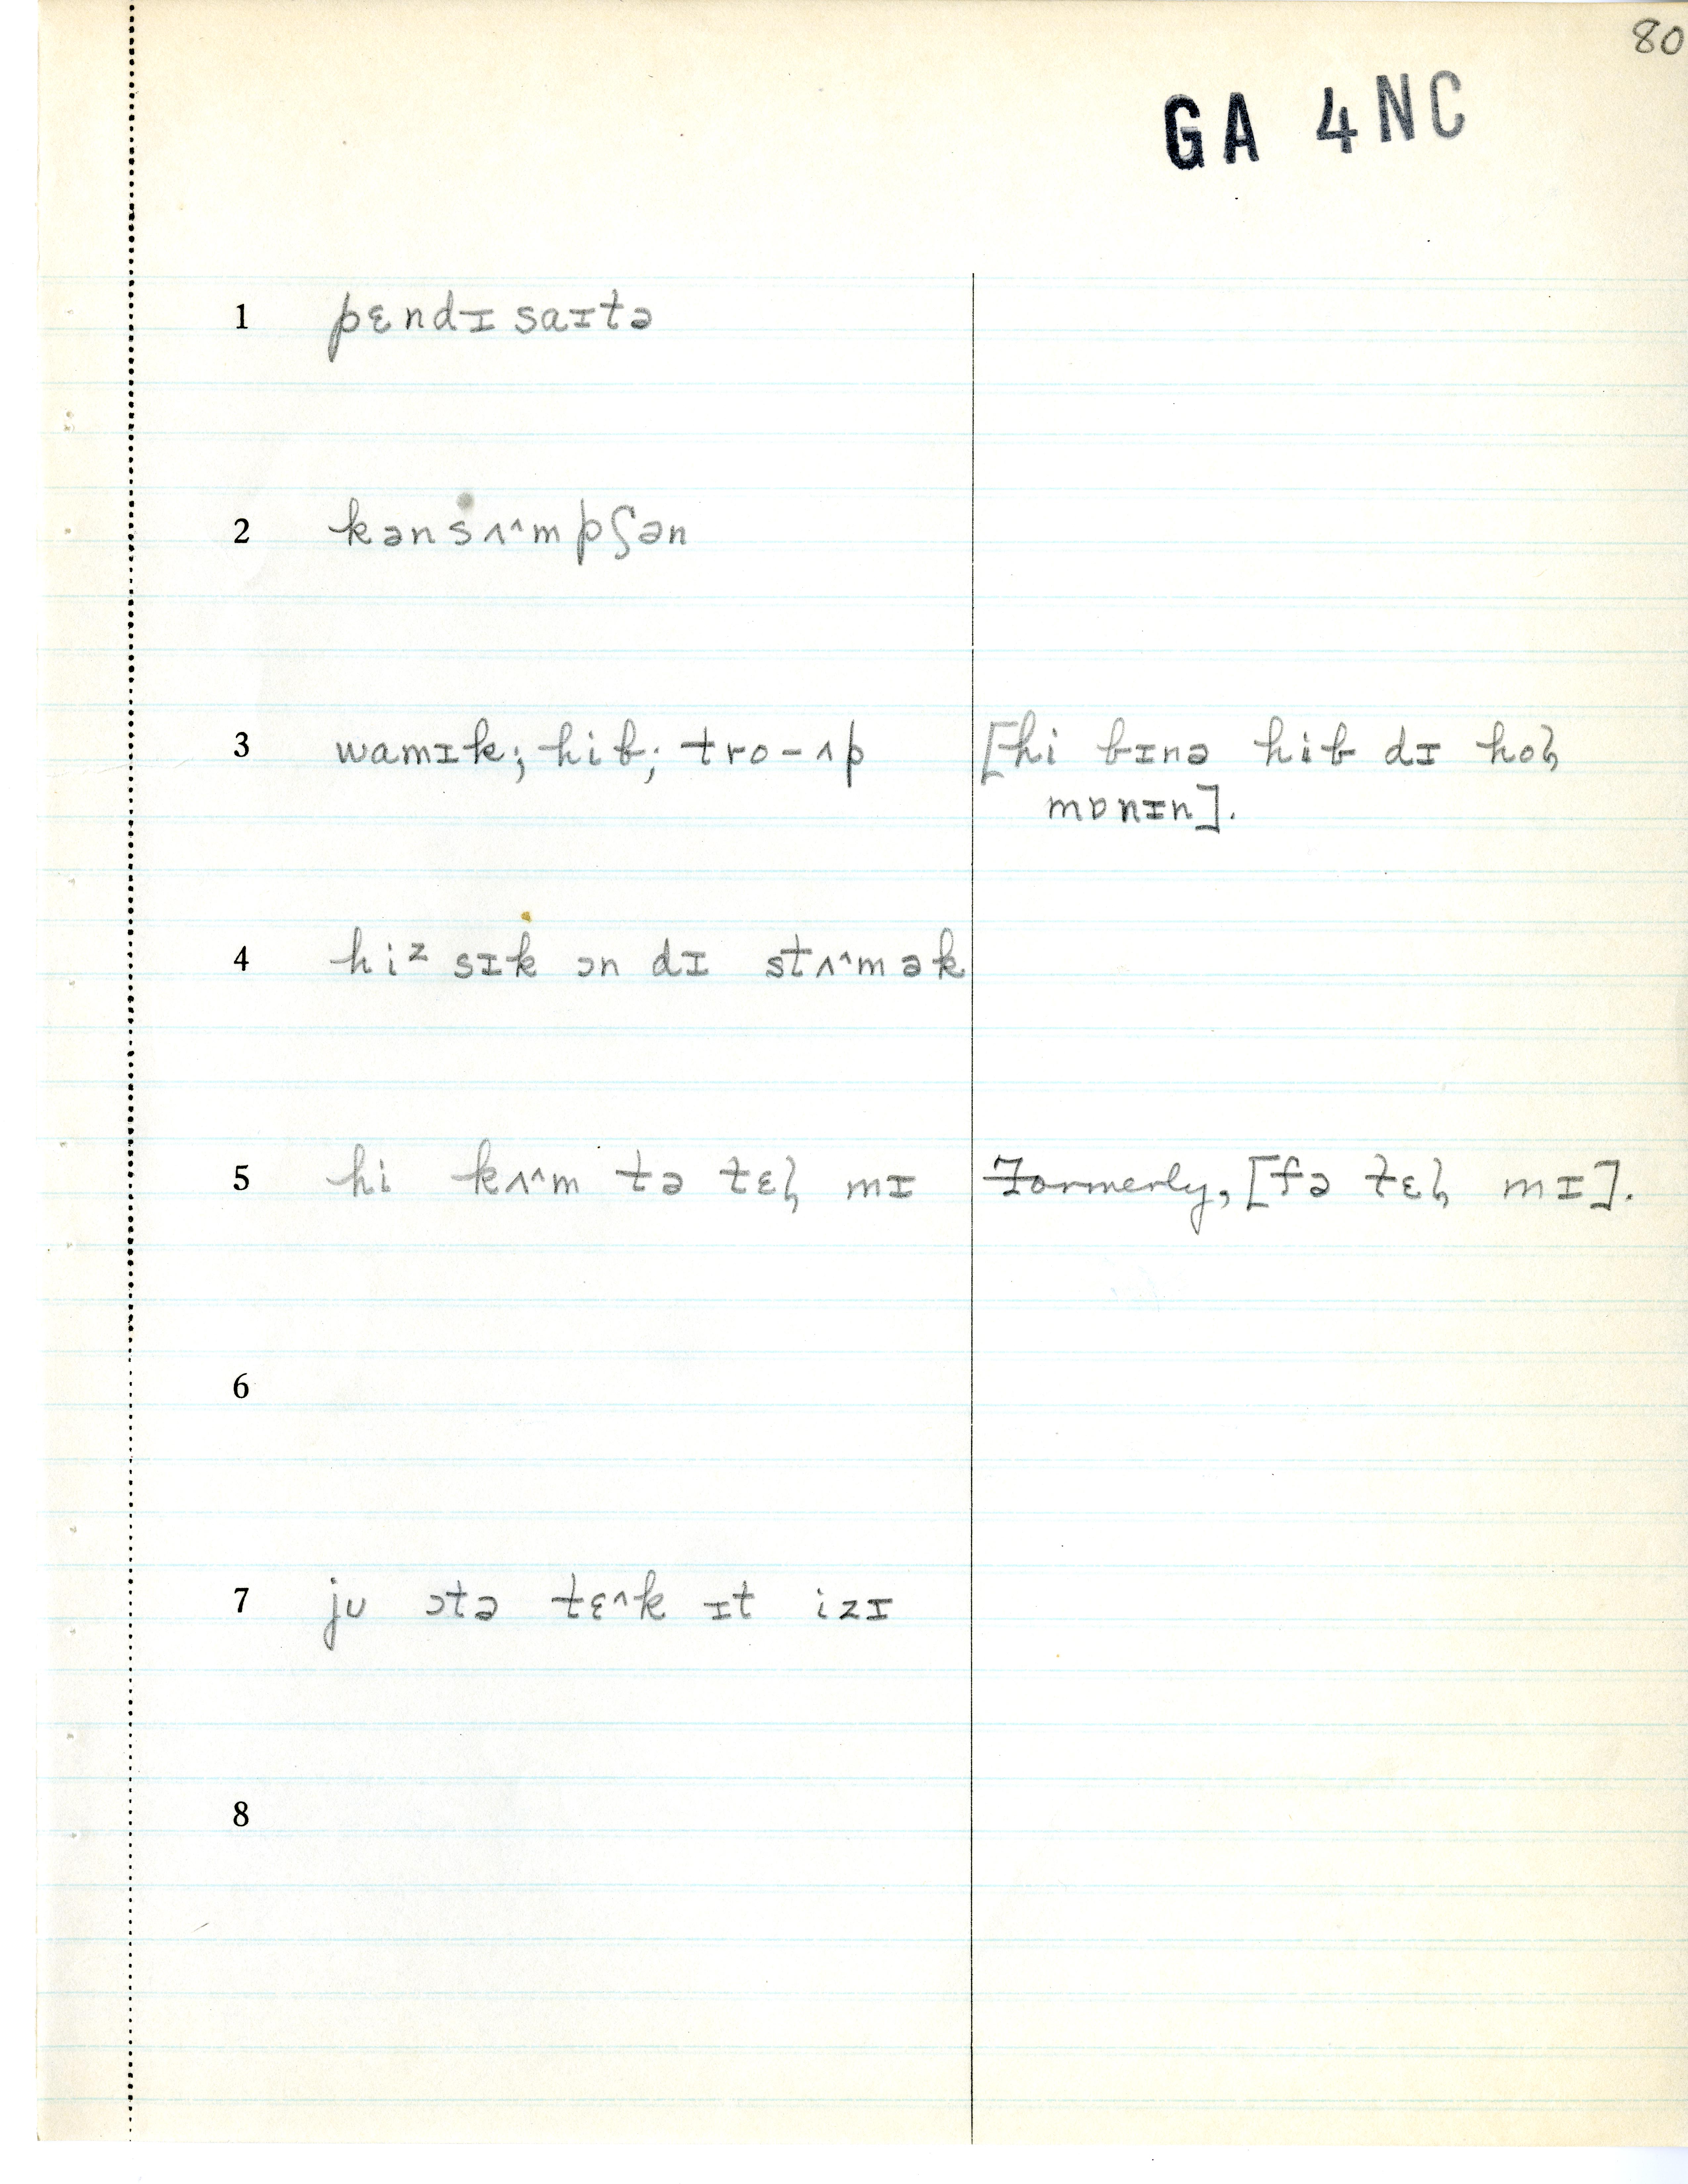 80
GA 4NC
1 pɛndɪ saɪtə
2 kənsʌ^mpʃən
3 wamɪk; hiƀ; tro-ʌp [hi ƀɪnə hiƀ dɪ hoɮ
mɒnɪn].
4 hiᶻ sɪk ɔn dɪ stʌ^mək
5 hi kʌ^m tə tɛɮ mɪ Formerly, [fə tɛɮ mɪ].
6
7 ju ɔtə tɛ^k ɪt izɪ
8